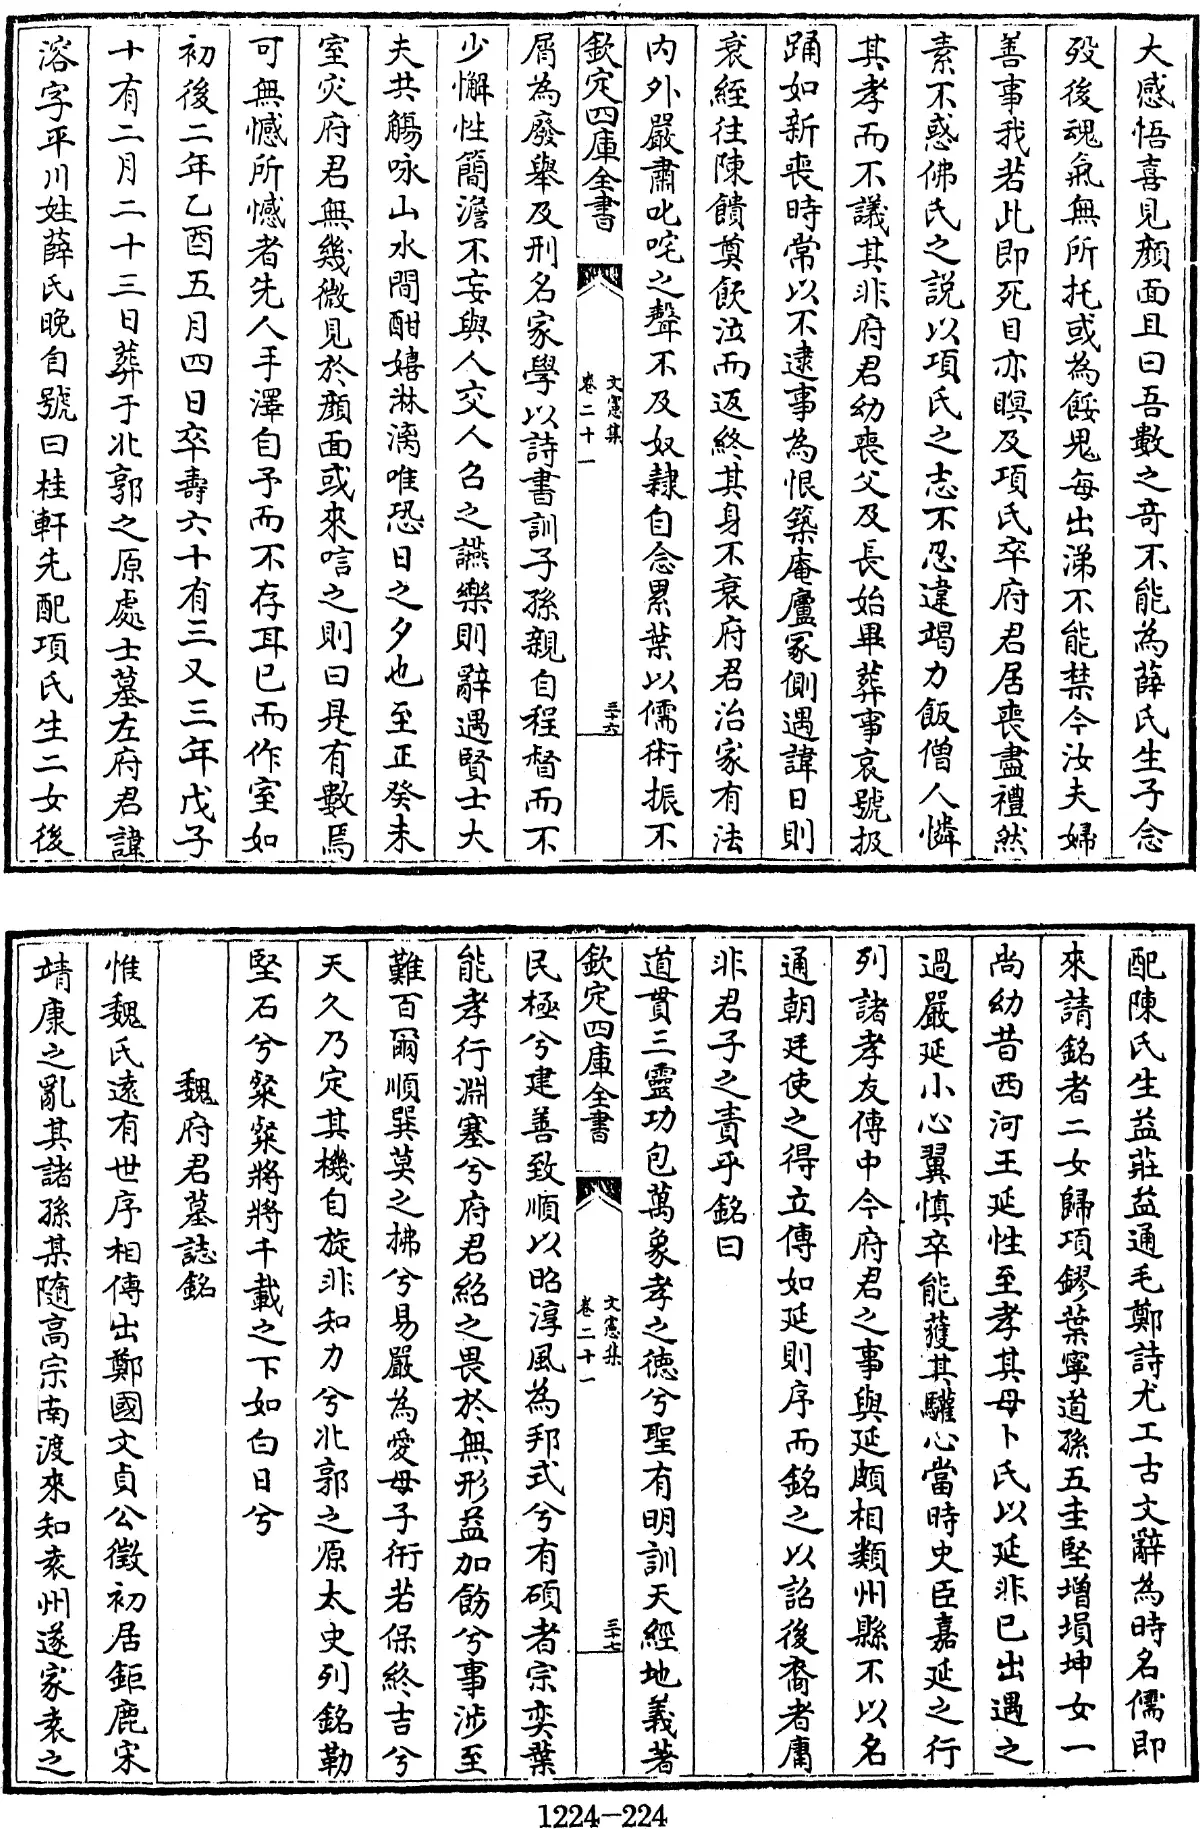 大感悟喜見顔面且曰吾數之竒不能為薛氏生子念
殁後魂氣無所托或為餒鬼每出涕不能禁今汝夫婦
善事我若此即死目亦瞑及項氏卒府君居喪盡禮然
素不惑佛氏之説以項氏之志不忍違竭力飯僧人憐
其孝而不議其非府君幼喪父及長始畢葬事哀號扱
踊如新喪時常以不逮事為恨築庵廬冢側遇諱日則
衰絰往陳饋奠飲泣而返終其身不衰府君治家有法
内外嚴肅叱咤之聲不及奴隸自念累葉以儒術振不
欽定四庫全書 文憲集 卷二十一 三十六
屑為廢舉及刑名家學以詩書訓子孫親自程督而不
少懈性簡澹不妄與人交人名之讌樂則辭遇賢士大
夫共觴咏山水間酣嬉淋漓唯恐日之夕也至正癸未
室災府君無幾微見於顔面或來唁之則曰是有數焉
可無憾所憾者先人手澤自予而不存耳已而作室如
初後二年乙酉五月四日卒壽六十有三又三年戊子
十有二月二十三日葬于北郭之原處士墓左府君諱
溶字平川姓薛氏晚自號曰桂軒先配項氏生二女後
配陳氏生益莊益通毛鄭詩尤工古文辭為時名儒即
來請銘者二女歸項鏐葉寧道孫五圭堅增塤坤女一
尚幼昔西河王延性至孝其母卜氏以延非已出遇之
過嚴延小心翼慎卒能獲其驩心當時史臣嘉延之行
列諸孝友傳中今府君之事與延頗相類州縣不以名
通朝廷使之得立傳如延則序而銘之以詔後裔者庸
非君子之責乎銘曰
道貫三靈功包萬象孝之徳兮聖有明訓天經地義著
欽定四庫全書 文憲集 卷二十一 三十七
民極兮建善致順以昭淳風為邦式兮有碩者宗奕葉
能孝行淵塞兮府君紹之畏於無形益加飭兮事涉至
難百爾順巽莫之拂兮易嚴為愛母子衎若保終吉兮
天久乃定其機自旋非知力兮北郭之原太史列銘勒
堅石兮粲粲將將千載之下如白日兮
魏府君墓誌銘
惟魏氏逺有世序相傳出鄭國文貞公徵初居鉅鹿宋
靖康之亂其諸孫某隨高宗南渡來知袁州遂家袁之
1224-224